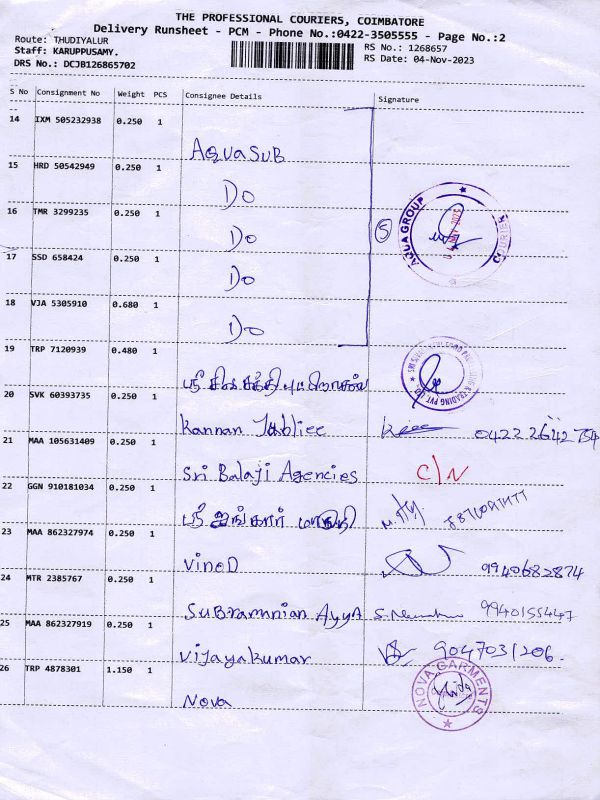 THE PROFESSIONAL COURIERS, COIMBATORE
Delivery Runsheet - PCM - Phone No.:0422-3505555 - Page No.:2
Route: THUDIYALUR
RS No.: 1268657
Staff: KARUPPUSAMY.
RS Date: 04-Nov-2023
DRS No.: DCJB126865702
S No Consignment No Weight PCS Consignee Details Signature
14 IXM 505232938 0.250 1
AQUASUB
15 HRD 50542949 0.250 1
Do
16 TMR 3299235 0.250 1
Do
5
AQUA GROUP
17 SSD 658424 0.250 1
Do
18 VJA 5305910 0.680 1
Do
19 TRP 7120939 0.480 1
ஸ்ரீ சிவசக்தி
TRADING PVT. LTD
20 SVK 60393735 0.250 1
Kannan 0422 2642754
21 MAA 105631409 0.250 1
Sri Balaji Agencies C/N
22 GGN 910181034 0.250 1
ஸ்ரீ
23 MAA 862327974 0.250 1
Vinod 9940682874
24 MTR 2385767 0.250 1
Subramnian Ayya 9940155447
25 MAA 862327919 0.250 1
Vijayakumar 9047031206.
26 TRP 4878301 1.150 1
Nova
NOVA GARMENTS